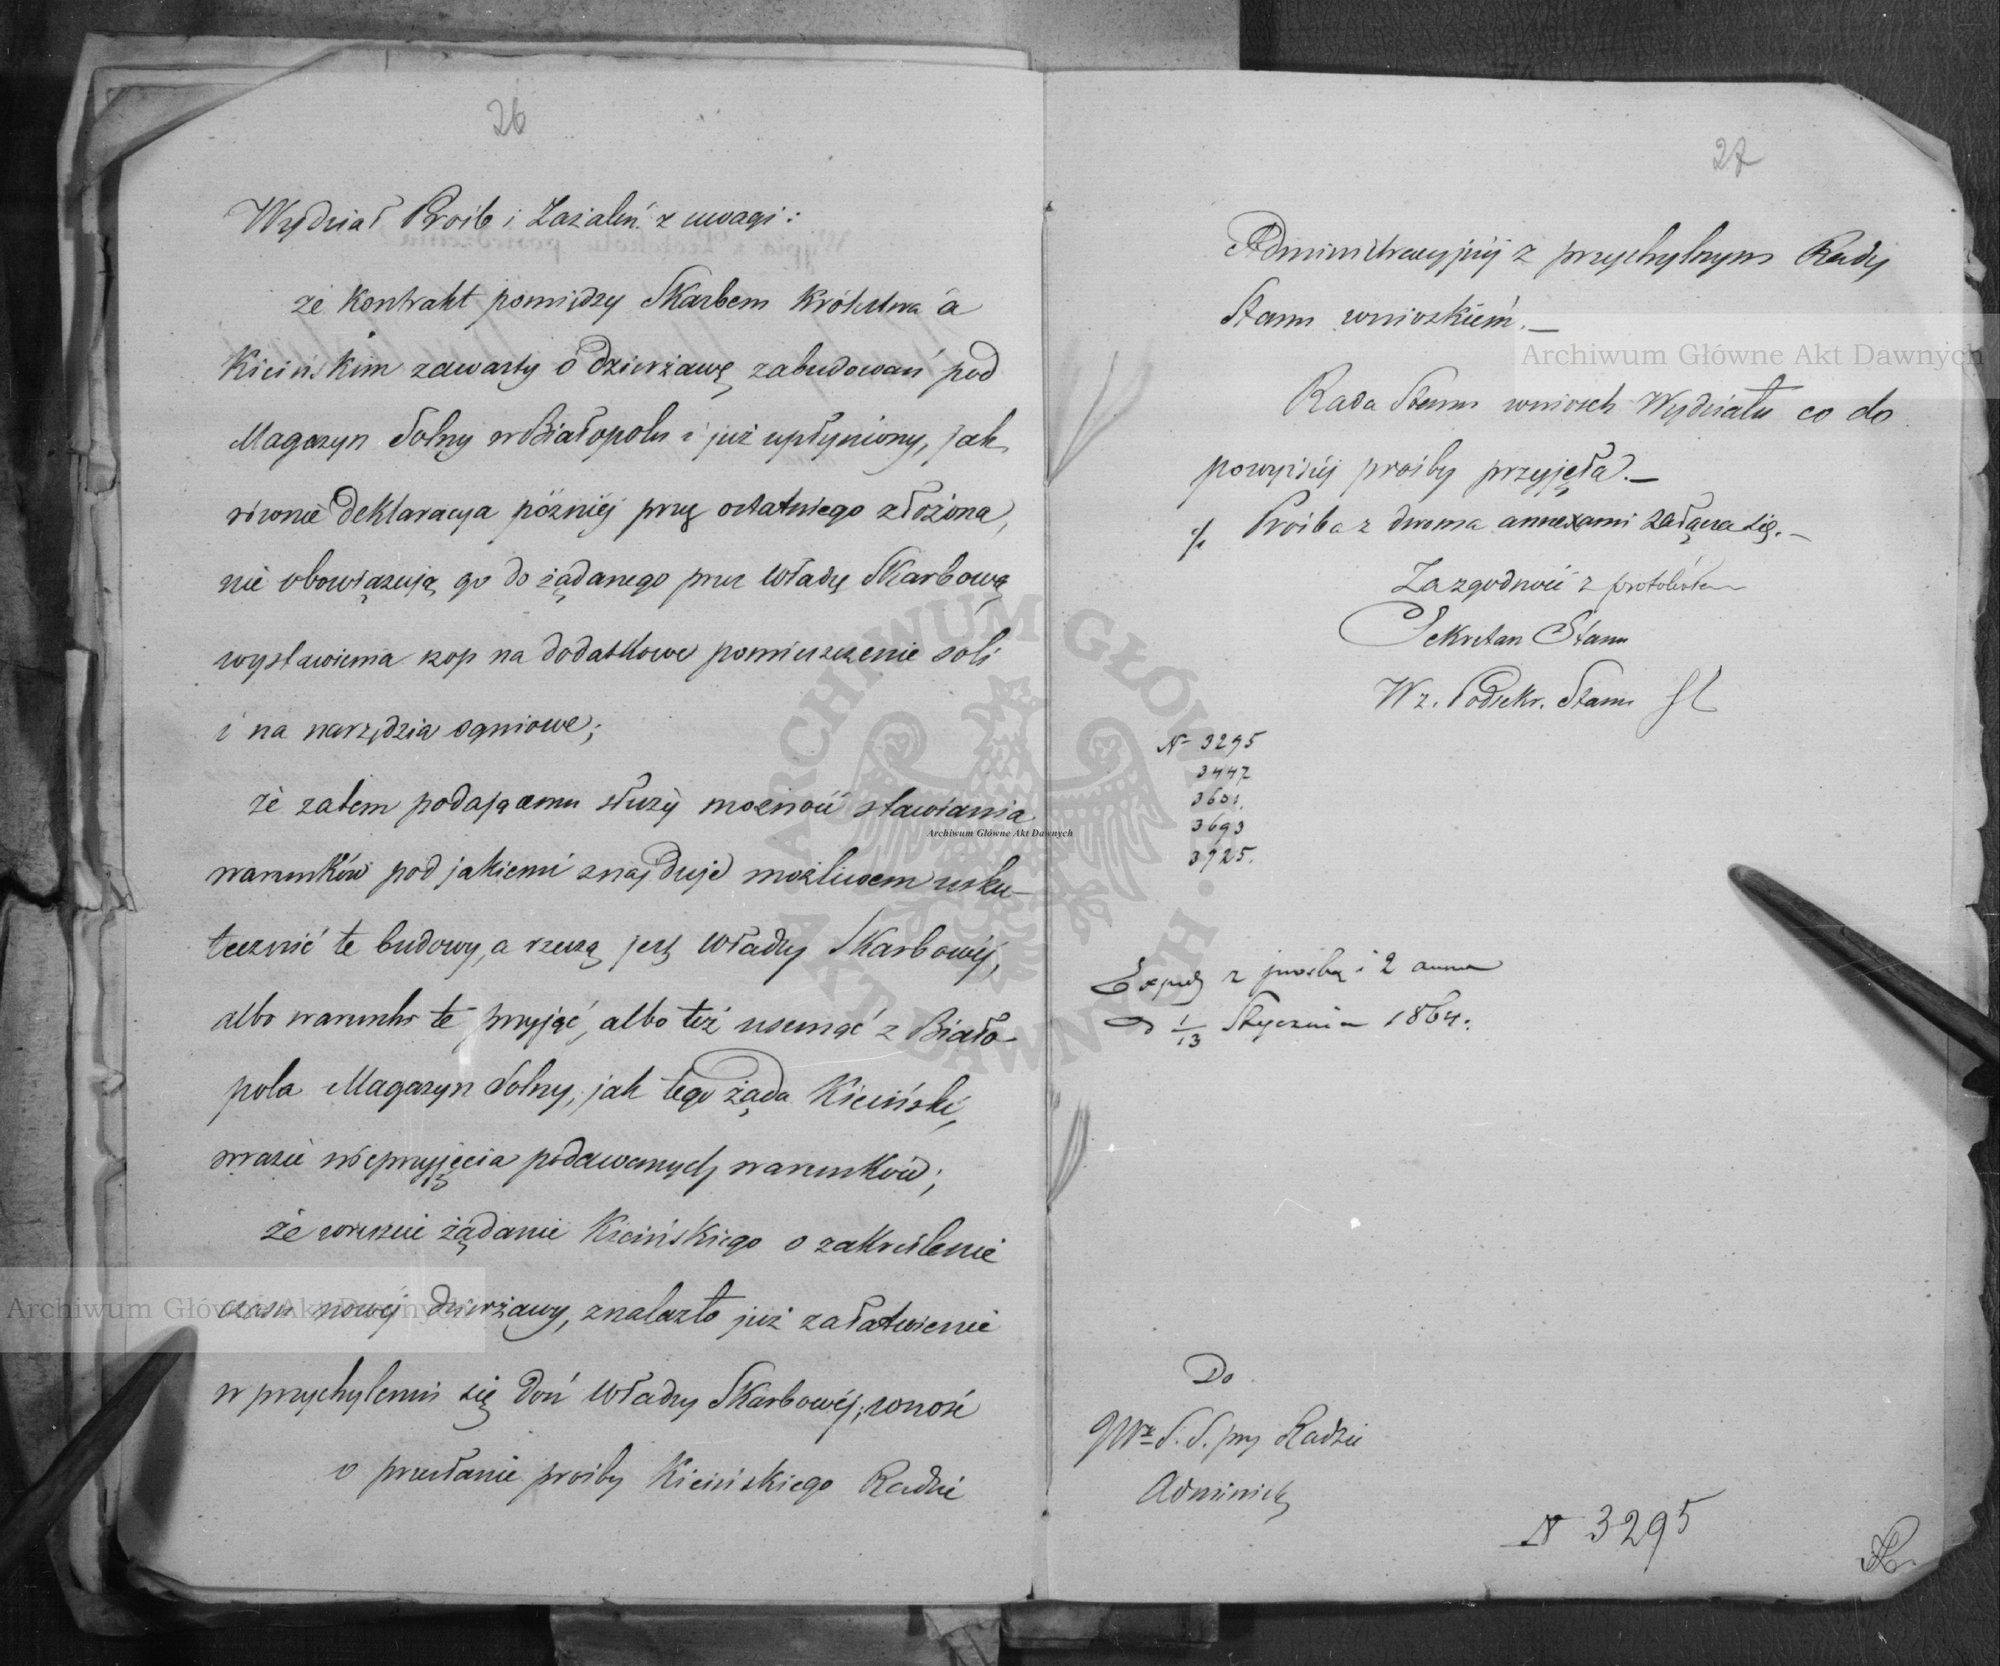 26
Wydział Proźb i Zażaleń z uwagi:
że Kontrakt pomiędzy Skarbem Królestwa a
Kicińskim zawarty o dzierżawę zabudowań pod
Magazyn Solny w Białopolu i już upłyniony, jak
równie deklaracya później przez ostatniego złożona,
nie obowiązują go do żądanego przez Władzę Skarbową
wystawienia szop na dodatkowe pomieszczenie soli
i na narzędzia ogniowe;
że zatem podającemu służy możność stawiania
warunków pod jakiemi znajduje możliwem usku-
tecznić te budowy, a rzeczą jest Władzy Skarbowéj,
albo warunki te przyjąć, albo też usunąć z Biało-
pola Magazyn Solny, jak tego żąda Kiciński,
w razie nieprzyjęcia podawanych warunków;
że wreszcie żądanie Kicińskiego o zakreślenie
czasu nowéj dzierżawy, znalazło już załatwienie
w przychyleniu się doń Władzy Skarbowéj; wnosi
o przesłanie proźby Kicińskiego Radzie
27
Administracyjnéj z przychylnym Rady
Stanu wnioskiem.—
Rada Stanu wniosek Wydziału co do
powyższéj proźby przyjęła.—
%. Proźba z dwoma annexami załącza się.—
Za zgodność z protokółem
Sekretarz Stanu
W z. Podsekr. Stanu
N 3295
3447
3601.
3693
3925.
Exped z proźbą i 2 annex
d 1/13 Stycznia 1864.
Do
JWz S. S. przy Radzie
Administr
N 3295
Archiwum Główne Akt Dawnych
Archiwum Główne Akt Dawnych
Archiwum Główne Akt Dawnych
ARCHIWUM GŁÓWNE AKT DAWNYCH